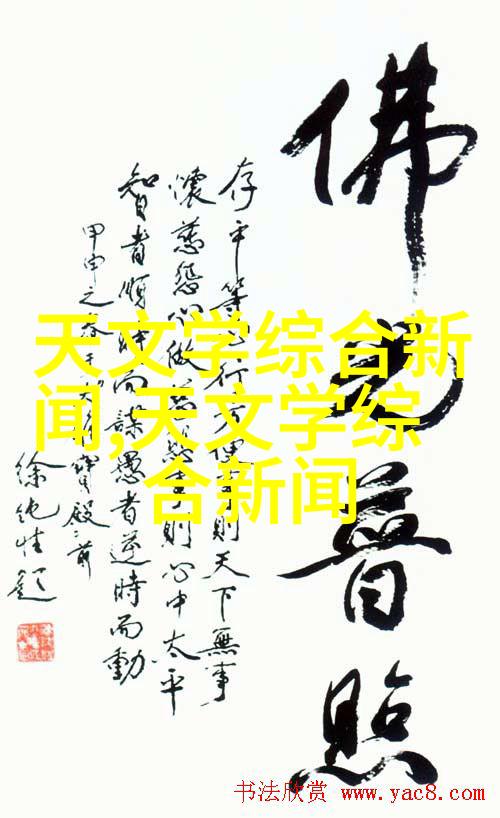 佛光普照
存平等心行方便事則天下無事
懷慈悲心做慈悲事則心中太平
智者順時而謀愚者逆時而動
甲申之春于大雄寶殿前
徐題
天文学综合新
闻,天文学综
合新闻
书法欣赏 www.yac8.com